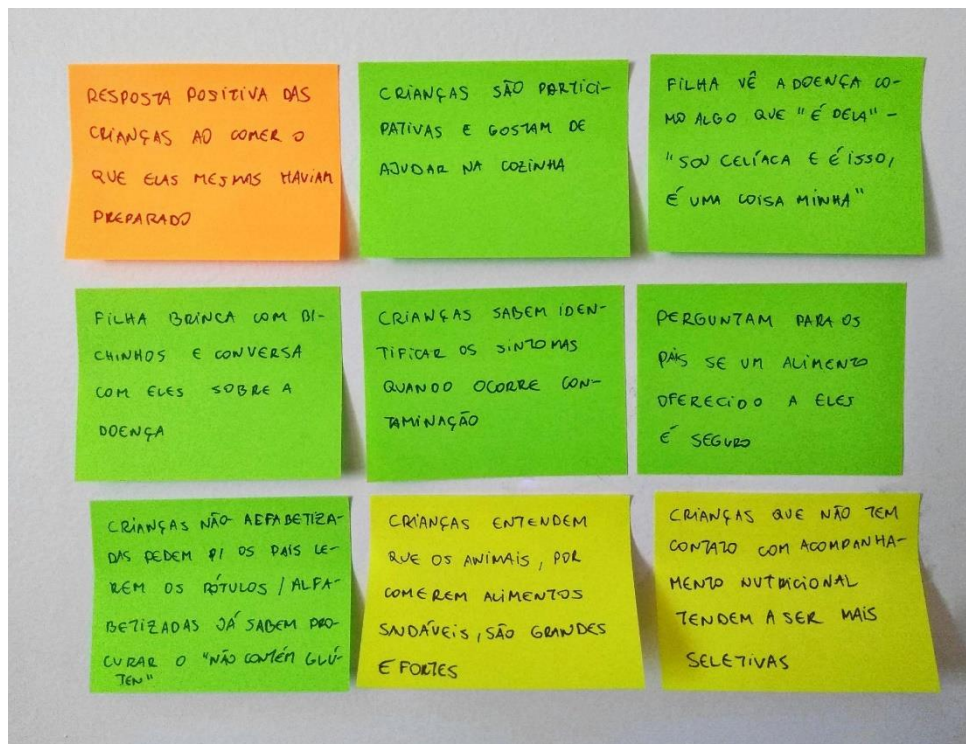 RESPOSTA POSITIVA DAS
CRIANÇAS AO COMER O
QUE ELAS MESMAS HAVIAM
PREPARADO
CRIANÇAS SÃO PARTICI-
PATIVAS E GOSTAM DE
AJUDAR NA COZINHA
FILHA VÊ A DOENÇA CO-
MO ALGO QUE "É DELA" -
"SOU CELÍACA E É ISSO,
É UMA COISA MINHA"
FILHA BRINCA COM BI-
CHINHOS E CONVERSA
COM ELES SOBRE A
DOENÇA
CRIANÇAS SABEM IDEN-
TIFICAR OS SINTOMAS
QUANDO OCORRE CON-
TAMINAÇÃO
PERGUNTAM PARA OS
PAIS SE UM ALIMENTO
OFERECIDO A ELES
É SEGURO
CRIANÇAS NÃO ALFABETIZA-
DAS PEDEM P/ OS PAIS LE-
REM OS RÓTULOS / ALFA-
BETIZADAS JÁ SABEM PRO-
CURAR O "NÃO CONTÉM GLÚ-
TEN"
CRIANÇAS ENTENDEM
QUE OS ANIMAIS, POR
COMEREM ALIMENTOS
SAUDÁVEIS, SÃO GRANDES
E FORTES
CRIANÇAS QUE NÃO TEM
CONTATO COM ACOMPANHA-
MENTO NUTRICIONAL
TENDEM A SER MAIS
SELETIVAS